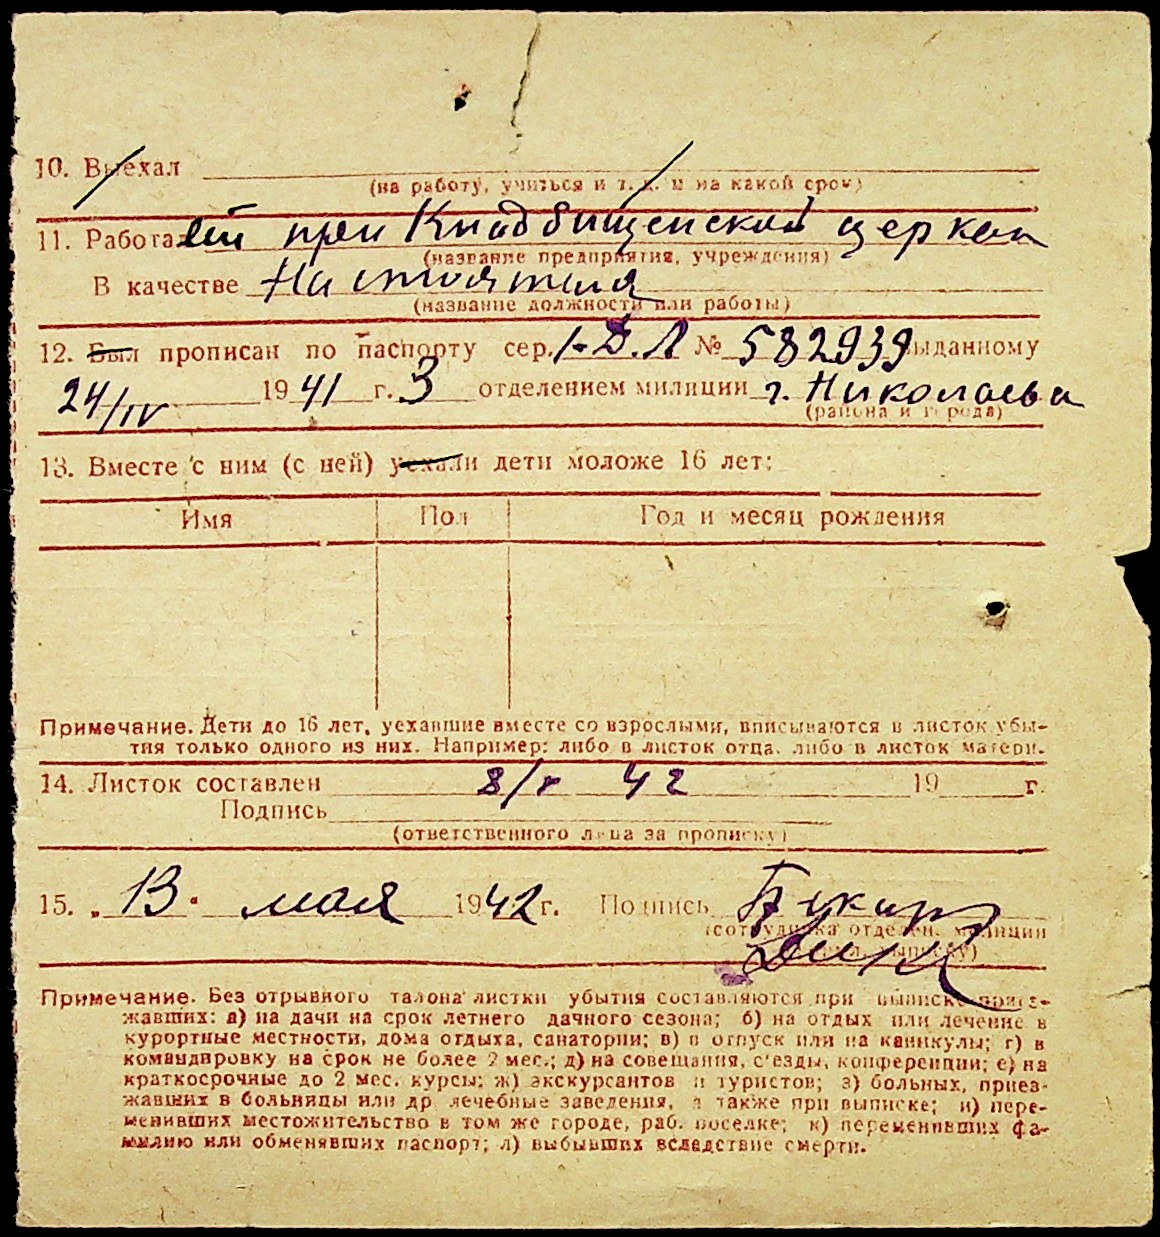 10. Выехал
(на работу, учиться и т. д. и на какой срок)
11. Работает при Кладбищенской церкви
(название предприятия, учреждения)
В качестве Настоятеля
(название должности или работы)
12. Был прописан по паспорту сер. I-Д.Л № 582939 выданному
24/IV 1941 г. 3 отделением милиции г. Николаева
(района и города)
13. Вместе с ним (с ней) уехали дети моложе 16 лет:
Имя Пол Год и месяц рождения
Примечание. Дети до 16 лет, уехавшие вместе со взрослыми, вписываются в листок убы-
тия только одного из них. Например: либо в листок отца, либо в листок матери.
14. Листок составлен 8/V 42 19 г.
Подпись
(ответственного лица за прописку)
15. „13" мая 1942 г. Подпись
(сотрудника отделен. милиции
выписку)
Примечание. Без отрывного талона листки убытия составляются при выписке приез-
жавших: а) на дачи на срок летнего дачного сезона; б) на отдых или лечение в
курортные местности, дома отдыха, санатории; в) в отпуск или на каникулы; г) в
командировку на срок не более 2 мес.; д) на совещания, с'езды, конференции; е) на
краткосрочные до 2 мес. курсы; ж) экскурсантов и туристов; з) больных, приез-
жавших в больницы или др лечебные заведения, а также при выписке; и) пере-
менивших местожительство в том же городе, раб. поселке; к) переменивших фа-
милию или обменявших паспорт; л) выбывших вследствие смерти.